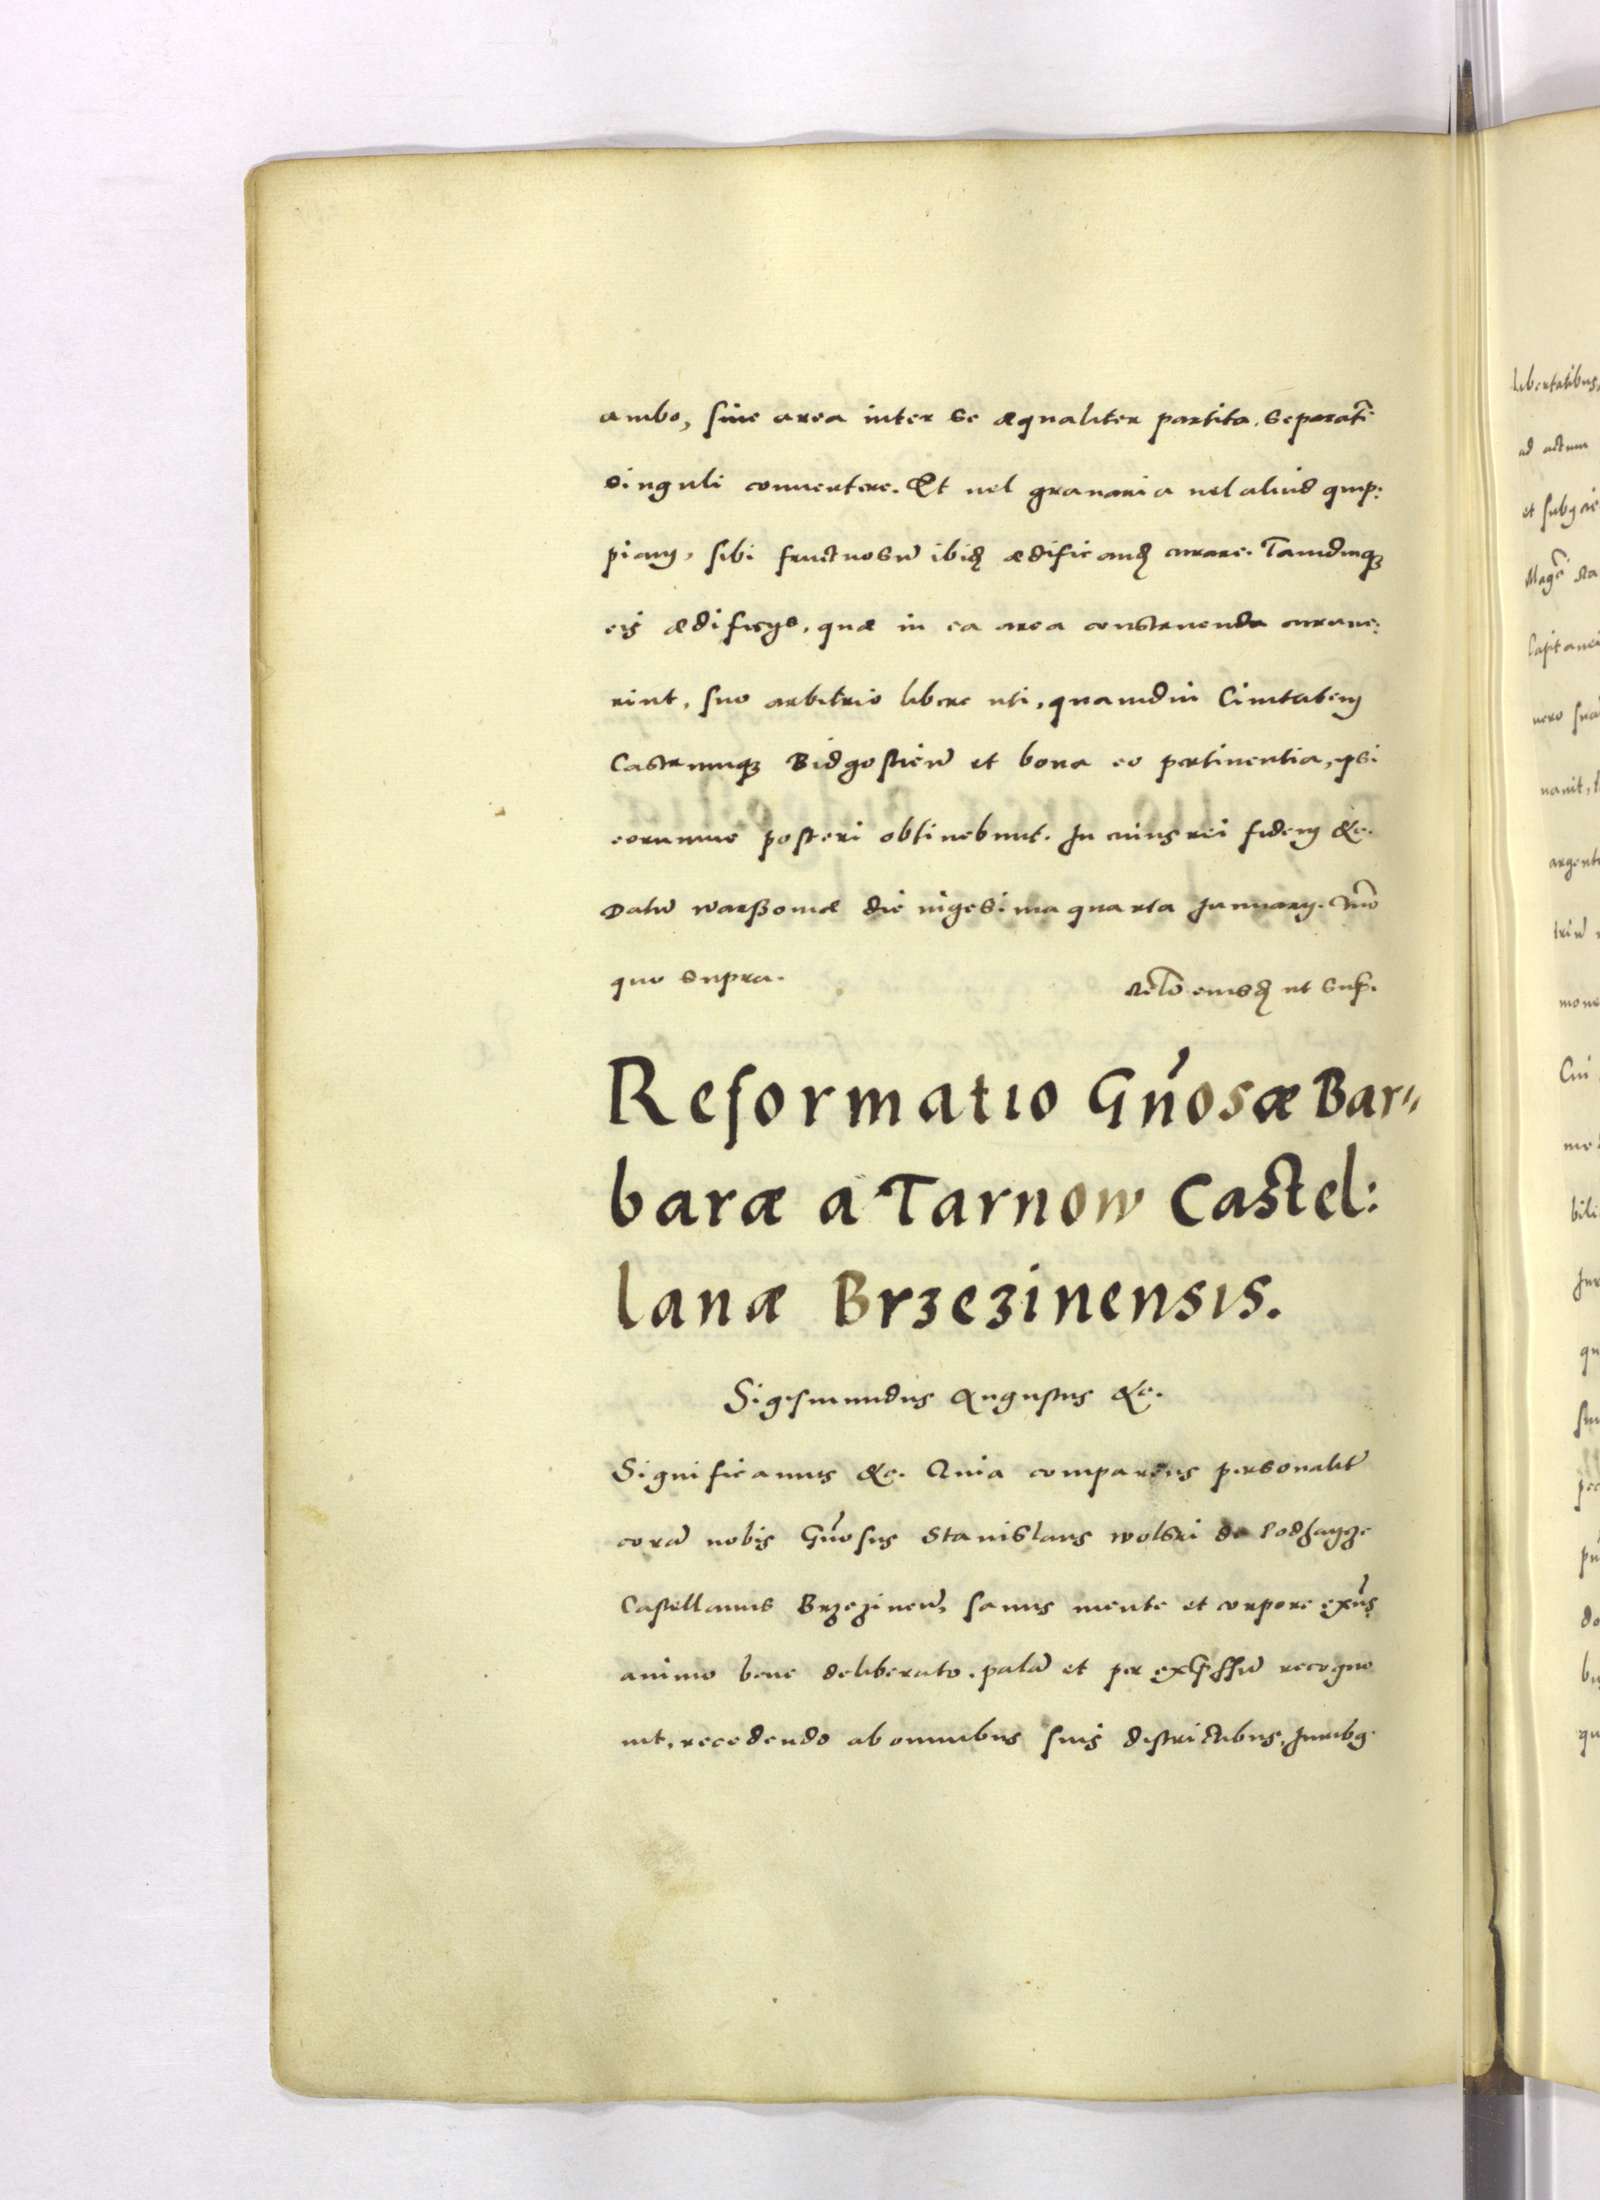 ambo, siue area inter se æqualiter partita, separatĩ
singuli conuertere. Et uel granaria uel aliud quip:
piam, sibi fructuosũ ibiđ ædificanđ curare. Tamdiuqȝ
eis ædificijs, quæ in ea area construenda curaue:
rint, suo arbitrio libere uti, quamdiu Ciuitatem
Castrumqȝ Bidgostieñ et bona eo pertinentia, ipsi
eorumue posteri obtinebunt. In cuius rei fidem &c.
Datũ Warßouiæ die uigesima quarta January. Ãno
quo supra.
Relõ eiusđ ut sup.
Reformatio Gñosæ Bar„
baræ a Tarnow Castel:
lanæ Brzezinensis.
Sigismundus Augustus &c.
Significamus &c. Quia comparens personalit̃
corã nobis Gñosus Stanislaus Wolski de Podhaycze
Castellanus Brzezineñ, sanus mente et corpore exñs
animo bene deliberato, palã et per exp̃ssũ recogno
uit, recedendo ab omnibus suis districtibus, Juribꝯ
libertatibus,
ad actum
et subiac
Capitanei
uero sua
argent
mone
Cui